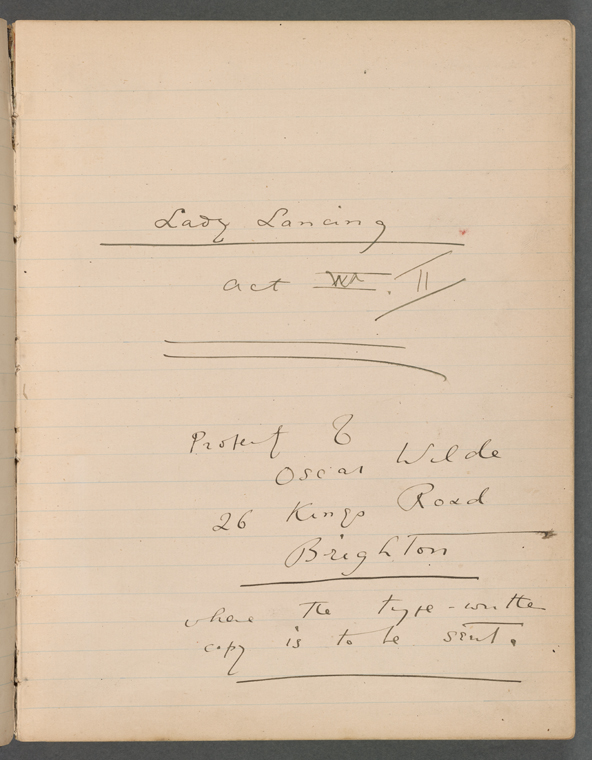 Lady Lancing
Act II
Property of
Oscar Wilde
26 Kings Road
Brighton
where the type-written
copy is to be sent.